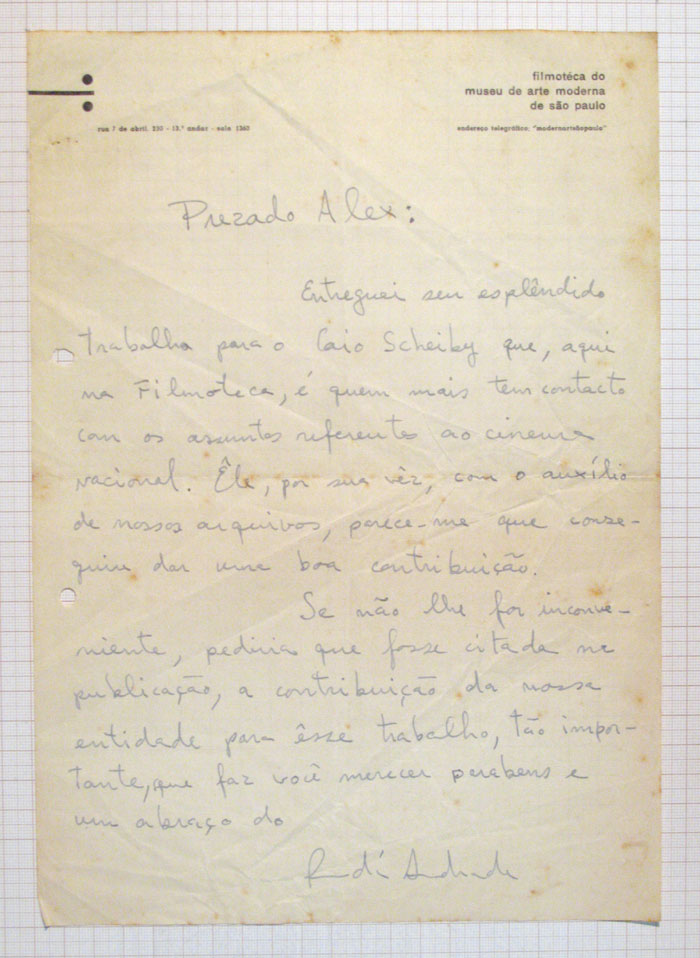 filmotéca do
museu de arte moderna
de são paulo
rua 7 de abril, 230 - 13.º andar - sala 1303
endereço telegráfico: "modernartsãopaulo"
Prezado Alex:
Entreguei seu esplêndido
trabalho para o Caio Scheiby que, aqui
na Filmoteca, é quem mais tem contacto
com os assuntos referentes ao cinema
nacional. Êle, por sua vêz, com o auxílio
de nossos arquivos, parece-me que conse-
guiu dar uma boa contribuição.
Se não lhe for inconve-
niente, pediria que fosse citada na
publicação, a contribuição da nossa
entidade para êsse trabalho, tão impor-
tante, que faz você merecer parabens e
um abraço do
Rudá Andrade